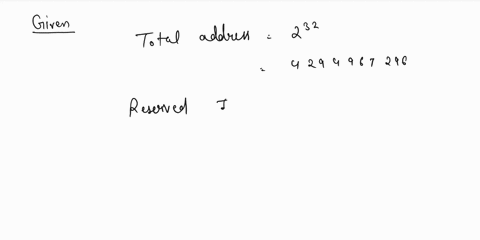 Given
Total address = 2^32
= 4 29 4 9 6 7 296
Reserved I